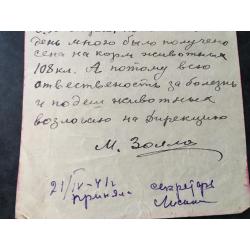 день мною было получено
сена на корм животным
108 кл. А потому всю
отвественость за болезнь
и подеж животных
возлогаю на дирекцию
М. Зояла
21/IV-41 г секретарь
приняла